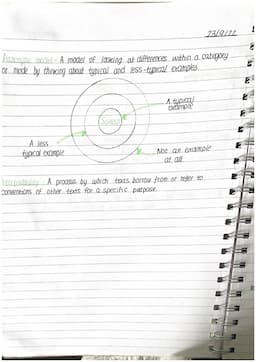 23/9/22
Prototype model - A model of looking at differences within a category
or mode by thinking about typical and less-typical examples.
A typical
example
A less
typical example
Not an example
at all
Intertextuality - A process by which texts borrow from or refer to
conventions of other texts for a specific purpose.